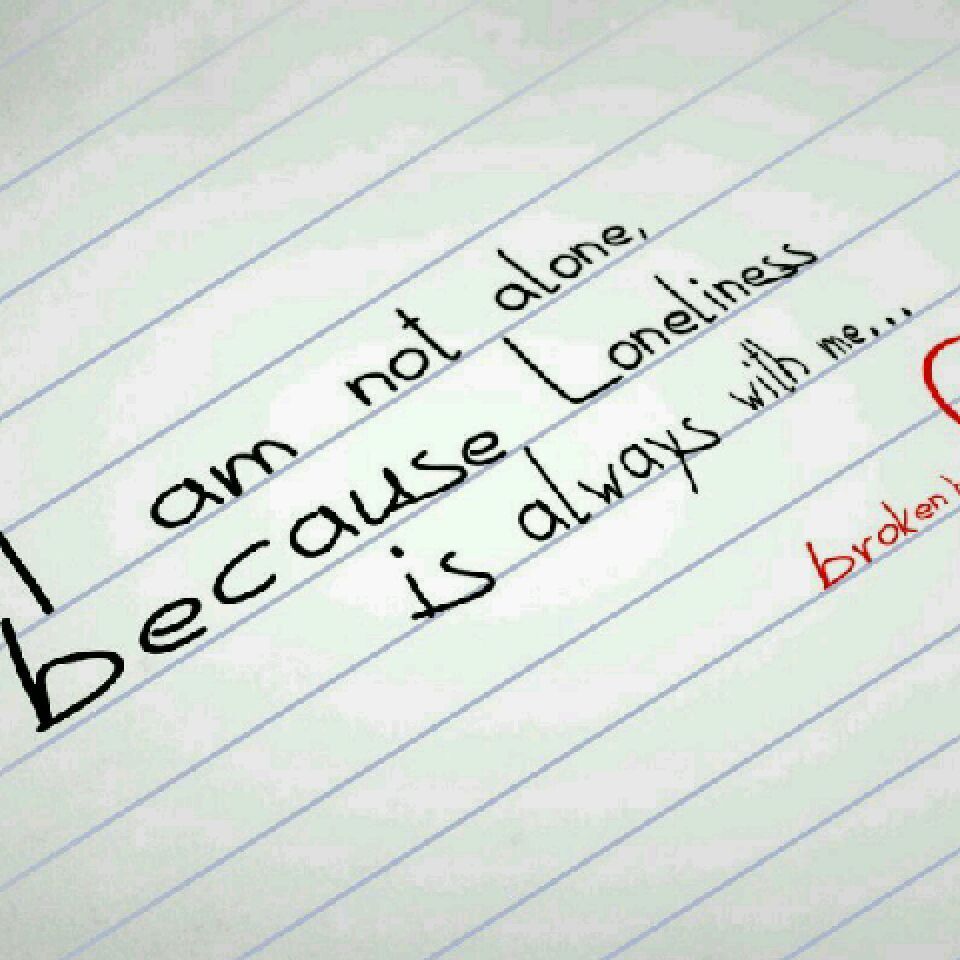 I am not alone,
because Loneliness
is always with me...
broken